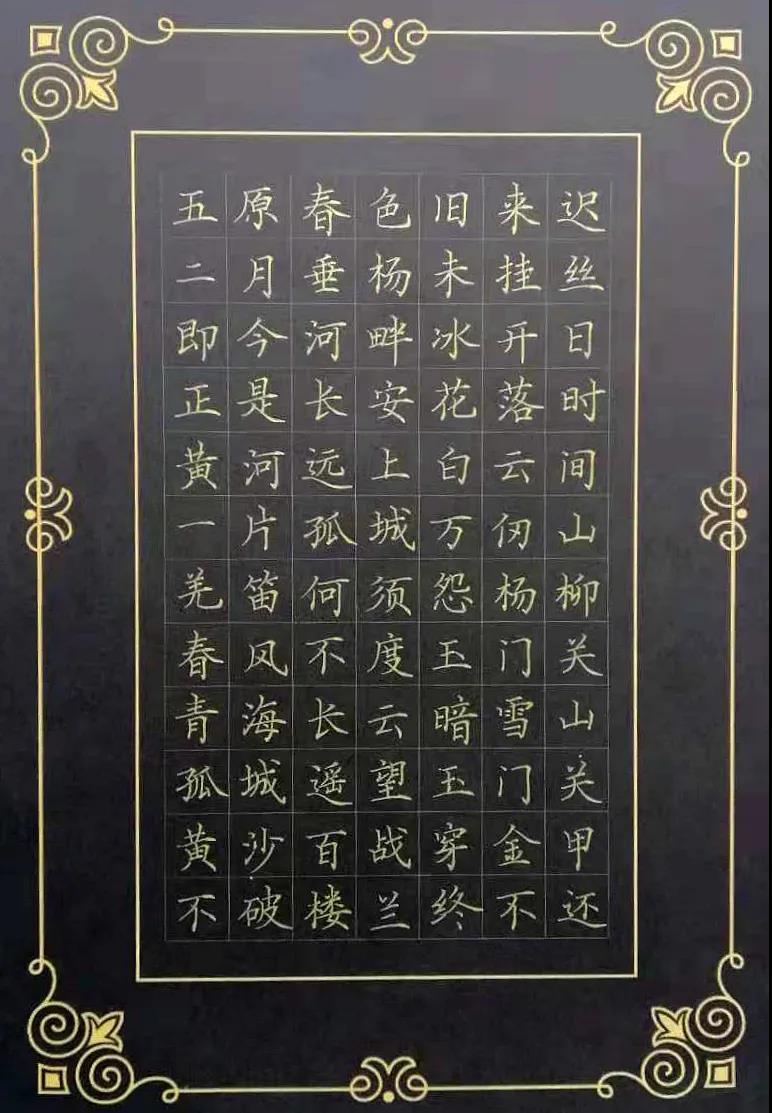 五原春色旧来迟
二月垂杨未挂丝
即今河畔冰开日
正是长安花落时
黄河远上白云间
一片孤城万仞山
羌笛何须怨杨柳
春风不度玉门关
青海长云暗雪山
孤城遥望玉门关
黄沙百战穿金甲
不破楼兰终不还